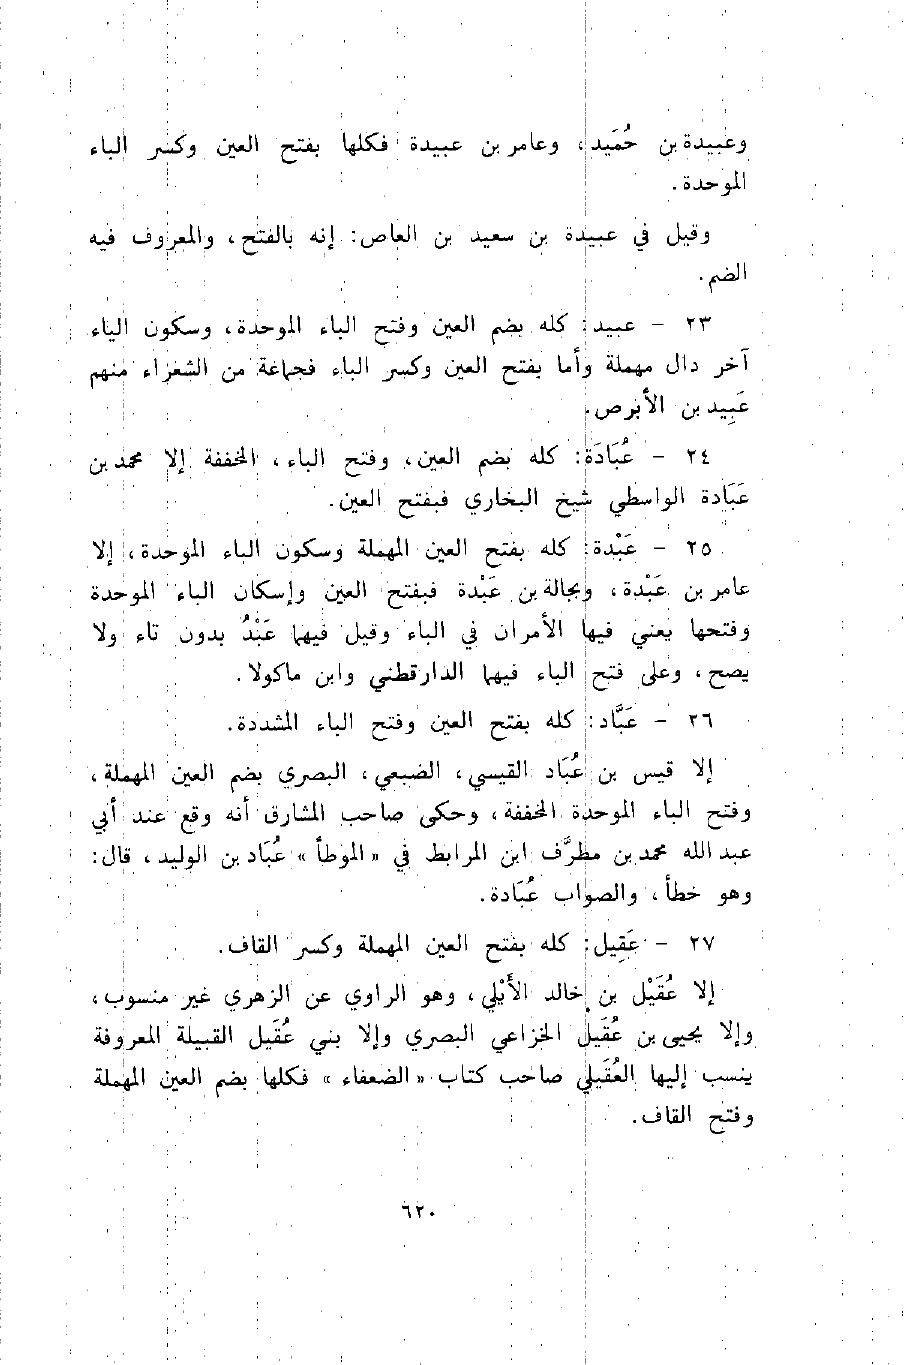 وعبيدة بن حُمَيد، وعامر بن عبيدة فكلها بفتح العين وكسر الباء
الموحدة.
وقيل في عبيدة بن سعيد بن العاص: إنه بالفتح، والمعروف فيه
الضم.
٢٣ - عبيد: كله بضم العين وفتح الباء الموحدة، وسكون الياء
آخر دال مهملة وأما بفتح العين وكسر الباء فجماعة من الشعراء منهم
عَبِيد بن الأبرص.
٢٤ - عُبَادَة: كله بضم العين، وفتح الباء، المخففة إلا محمد بن
عَبَادة الواسطي شيخ البخاري فبفتح العين.
٢٥ - عَبْدة: كله بفتح العين المهملة وسكون الباء الموحدة، إلا
عامر بن عَبْدة، وبجالة بن عَبْدة فبفتح العين وإسكان الباء الموحدة
وفتحها يعني فيها الأمران في الباء وقيل فيهما عَبْدُ بدون تاء ولا
يصح، وعلى فتح الباء فيهما الدارقطني وابن ماكولا.
٢٦ - عَبَّاد: كله بفتح العين وفتح الباء المشددة.
إلا قيس بن عُبَاد القيسي، الضبعي، البصري بضم العين المهملة،
وفتح الباء الموحدة المخففة، وحكى صاحب المشارق أنه وقع عند أبي
عبد الله محمد بن مطرَّف ابن المرابط في «الموطأ» عُبَاد بن الوليد، قال:
وهو خطأ، والصواب عُبَادة.
٢٧ - عَقِيل: كله بفتح العين المهملة وكسر القاف.
إلا عُقَيْل بن خالد الأَيْلي، وهو الراوي عن الزهري غير منسوب،
وإلا يحيى بن عُقَيل الخزاعي البصري وإلا بني عُقَيل القبيلة المعروفة
ينسب إليها العُقَيلي صاحب كتاب «الضعفاء» فكلها بضم العين المهملة
وفتح القاف.
٦٢٠